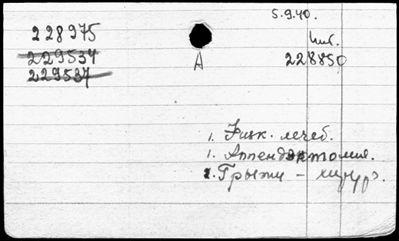 5.9.40.
228975
инв.
229534
A
228850
229537
1. Физк. лечеб.
1. Аппендэктомия.
2. Грыжи - хирур.